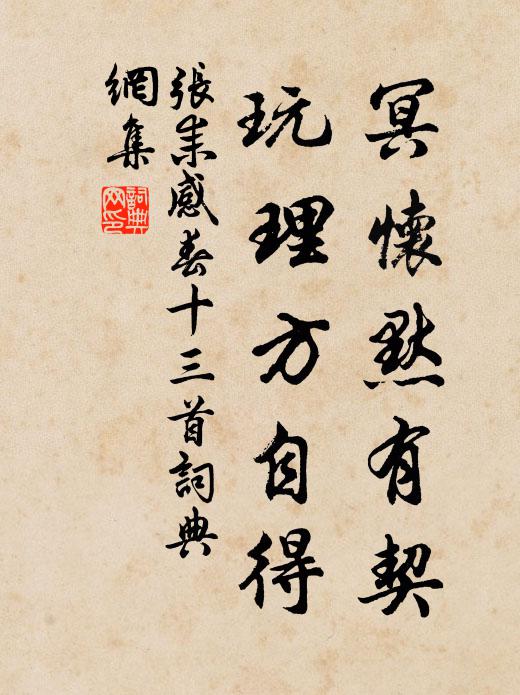 冥懷默有契
玩理方自得
張耒感春十三首詞典
網集
詞典網印